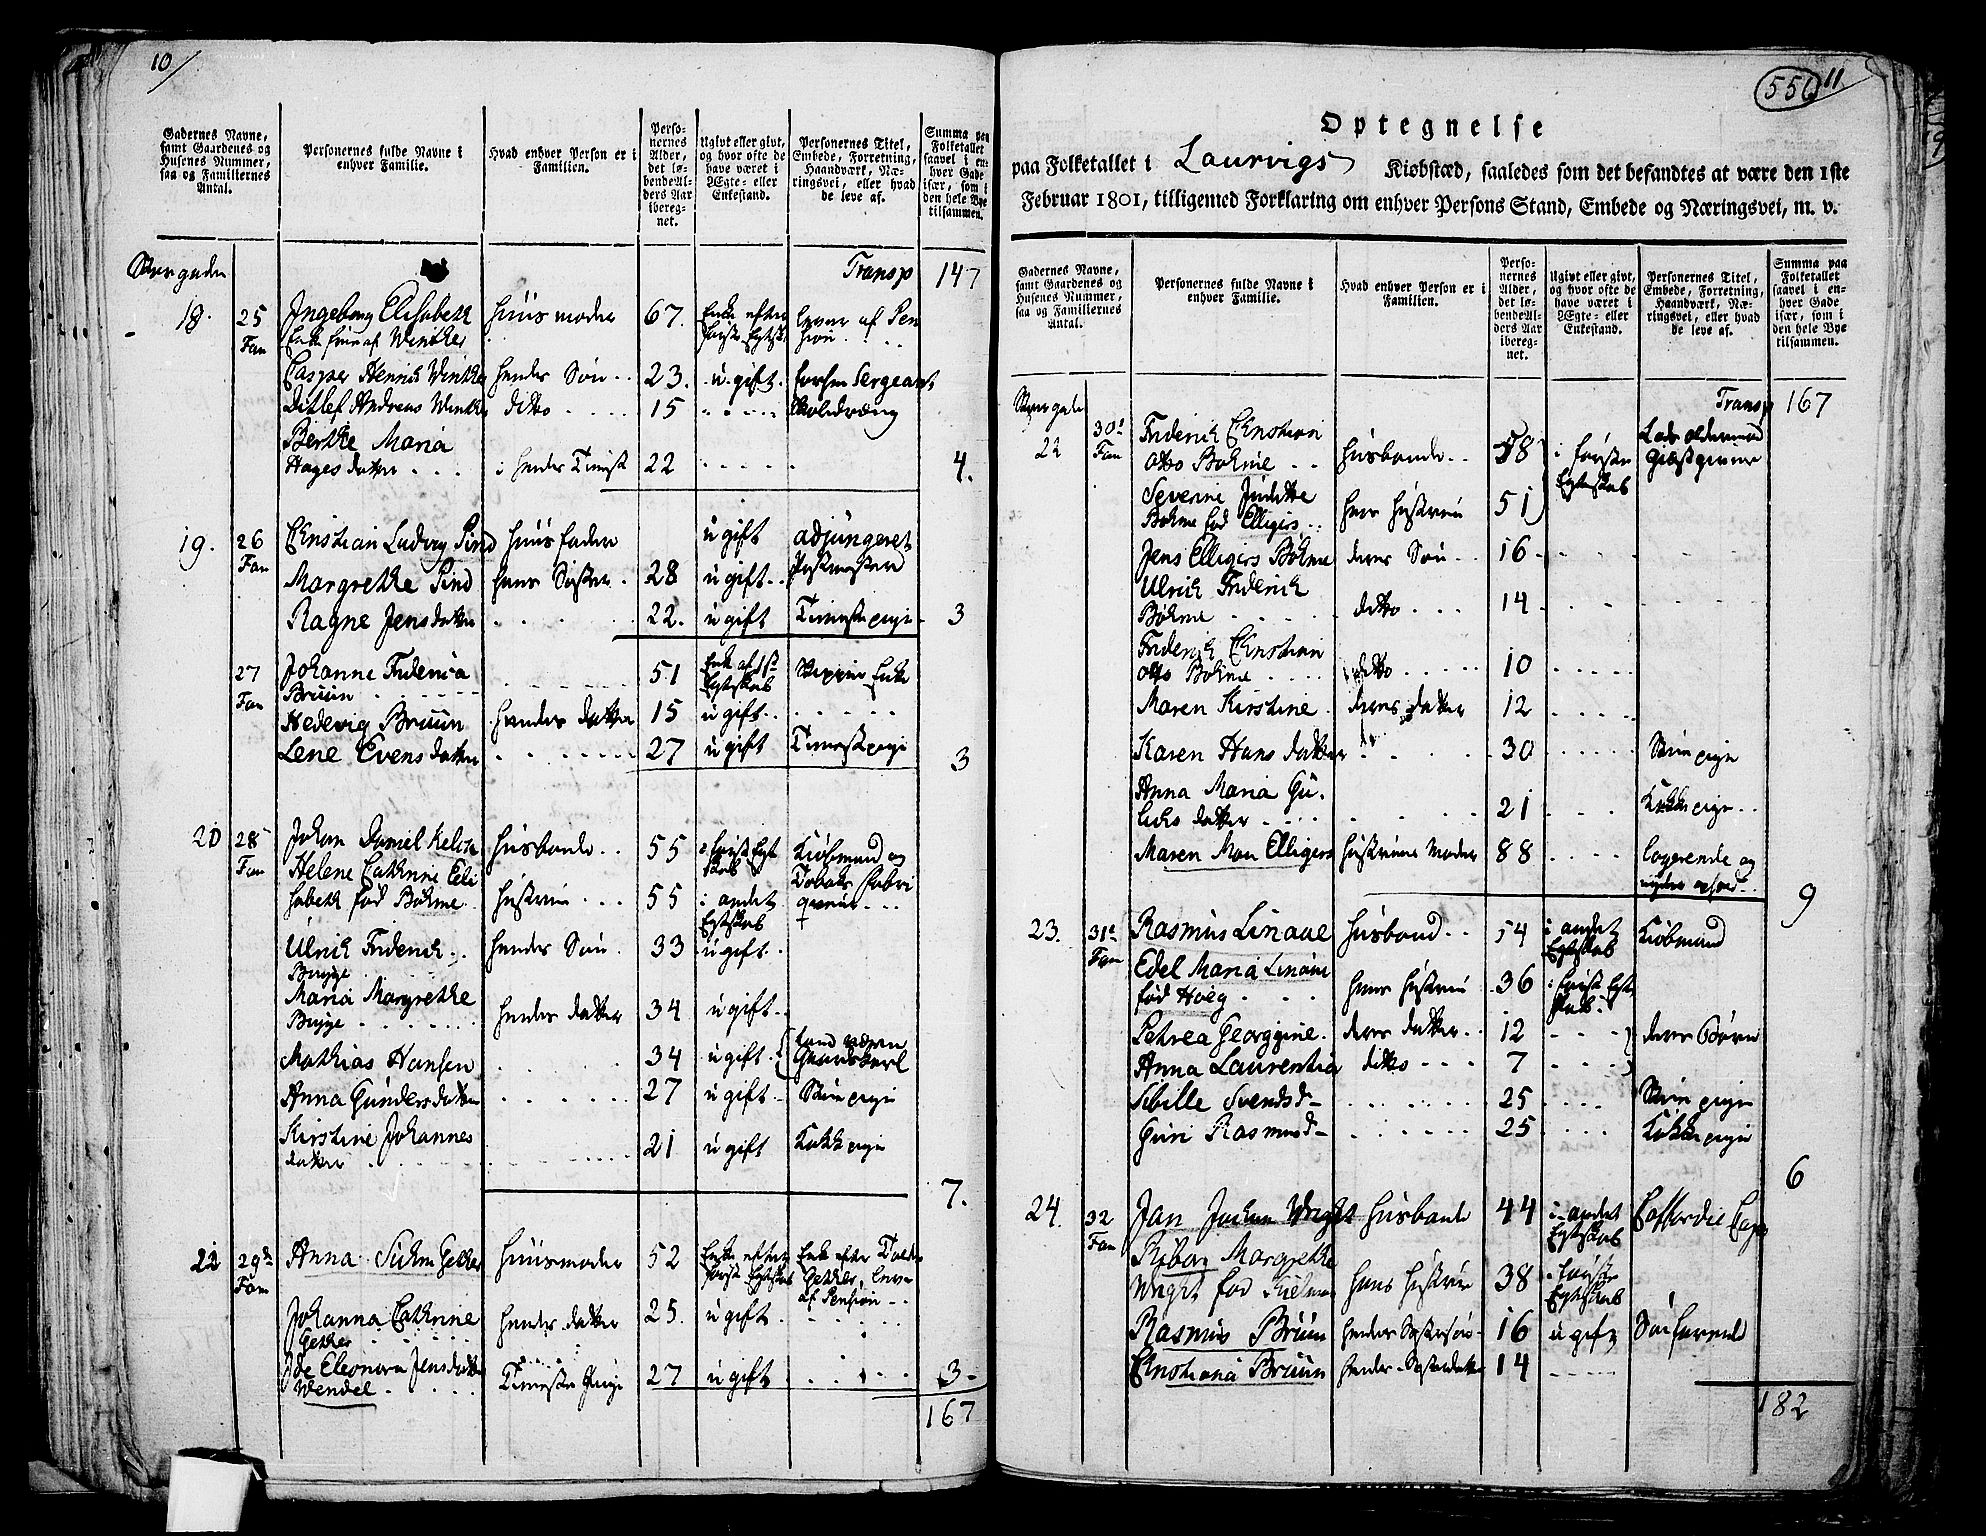 10
Gadernes Navne,
samt Gaardenes og
Husenes Nummer,
saa og Familiernes
Antal.
Personernes fulde Navne i
enhver Familie.
Hvad enhver Person er i
Familien.
Perso-
nernes
Alder,
det lø-
bende Al-
ders Aar
iberegnet.
Ugivt eller givt,
og hvor ofte de
have været i
Ægte- eller
Enkestand.
Personernes Titel,
Embede, Forretning,
Haandværk, Næ-
ringsvei, eller hvad
de leve af.
Summa paa
Folketallet
saavel i en-
hver Gade
især, som i
den hele Bye
tilsammen.
Transp 147
18. 25 Ingeborg Elisabeth Huusmoder 67. Enke efter Lever af Pen
Fam Winther første Egtsk. sion
Casper Henrich Winther hendes Søn 23. ugift Sergeant
Ditlef Andreas Winther ditto 15
Berthe Maria
Hages datter hendes Tienist 22 4.
19. 26 Christian Ludvig Pind Huusfader ugift adjungeret
Fam Postmester
Margrethe Pind hans Søster 28 ugift
Ragne Jensdatter 22. ugift Tienestepige 3
27 Johanne Friderica 51 Enke af 1st Skipper Enke
Fam Bruun Egtskab
Hedevig Bruun hendes datter 15 ugift
Lene Evens datter 27 ugift Tienestpige 3
20 28 Johan Daniel husbonde 55 i først Egt Kiøbmand og
Fam skab Tobaks Fabri
Helene Cathrine Eli
sabeth fød Bøhme hustrue 55 i andet Egtskab
Ulrich Friderich hendes Søn 33 ugift
Brygge
Maria Margrethe hendes datter 34 ugift
Brygge
Mathias Hansen 34 ugift Gaardskarl
Anna Gunders datter 27 ugift Stuepige
Kirstine Johannes
datter 21 ugift Kokkepige
7.
29de Anna Suhm Gether Huusmoder 52 Enke efter Enke efter Told
Fam første Egtskab Gether, lever
af Pension
Johanna Cathrine hendes datter 25. ugift
Gether
Ide Eleonora Jensdatter Tieneste Pige 27 ugift 3
Wendel
167
556 11.
Optegnelse
paa Folketallet i Laurvigs Kiøbstæd, saaledes som det befandtes at være den 1ste
Februar 1801, tilligemed Forklaring om enhver Persons Stand, Embede og Næringsvei, m. v.
Gadernes Navne,
samt Gaardenes og
Husenes Nummer,
saa og Familiernes
Antal.
Personernes fulde Navne i
enhver Familie.
Hvad enhver Person er i
Familien.
Perso-
nernes
Alder,
det lø-
bende Al-
ders Aar
iberegnet.
Ugivt eller givt,
og hvor ofte de
have været i
Ægte- eller
Enkestand.
Personernes Titel,
Embede, Forretning,
Haandværk, Næ-
ringsvei, eller hvad
de leve af.
Summa paa
Folketallet
saavel i en-
hver Gade
især, som i
den hele Bye
tilsammen.
Transp 167
22 30te Friderich Christian Lods oldermand
Fam Otto Bøhme husbonde 58 i første Giæstgiver
Egtskab
Severine Juditte
Bøhme fød Elligers hans hustrue 51
Jens Elligers Bøhme deres Søn 16
Ulrich Friderich
Bøhme ditto 14
Friderich Christian
Otto Bøhme ditto 10
Maren Kirstine deres datter 12
Karen Hans datter 30 Stuepige
Anna Maria Gu-
datter 21 Kokkepige
Maren Elligers hustruens Moder 88 logerende og
9
23. 31te Rasmus Linaae husbond 54 i andet Kiøbmand
Fam Egtskab
Edel Maria Linaae
fød Høeg hans hustrue 36 i først Egt
skab
Petrea Georggine deres datter 12 deres Børn
Anna Laurentia ditto 7
Sibille Svendsd- 25 Stuepige
Guri Rasmusd- 25 Kokkepige
6
24. 32 Jan Jochum Wright husbonde 44 i andet Coffardie Cap
Fam Egtskab
Margrethe
Wright fød hans hustrue 38 i første
Egtskab
Rasmus Bruun hendes Søstersøn 16 ugift Søefarende
Christiana Bruun hendes Søsterdatter 14
182